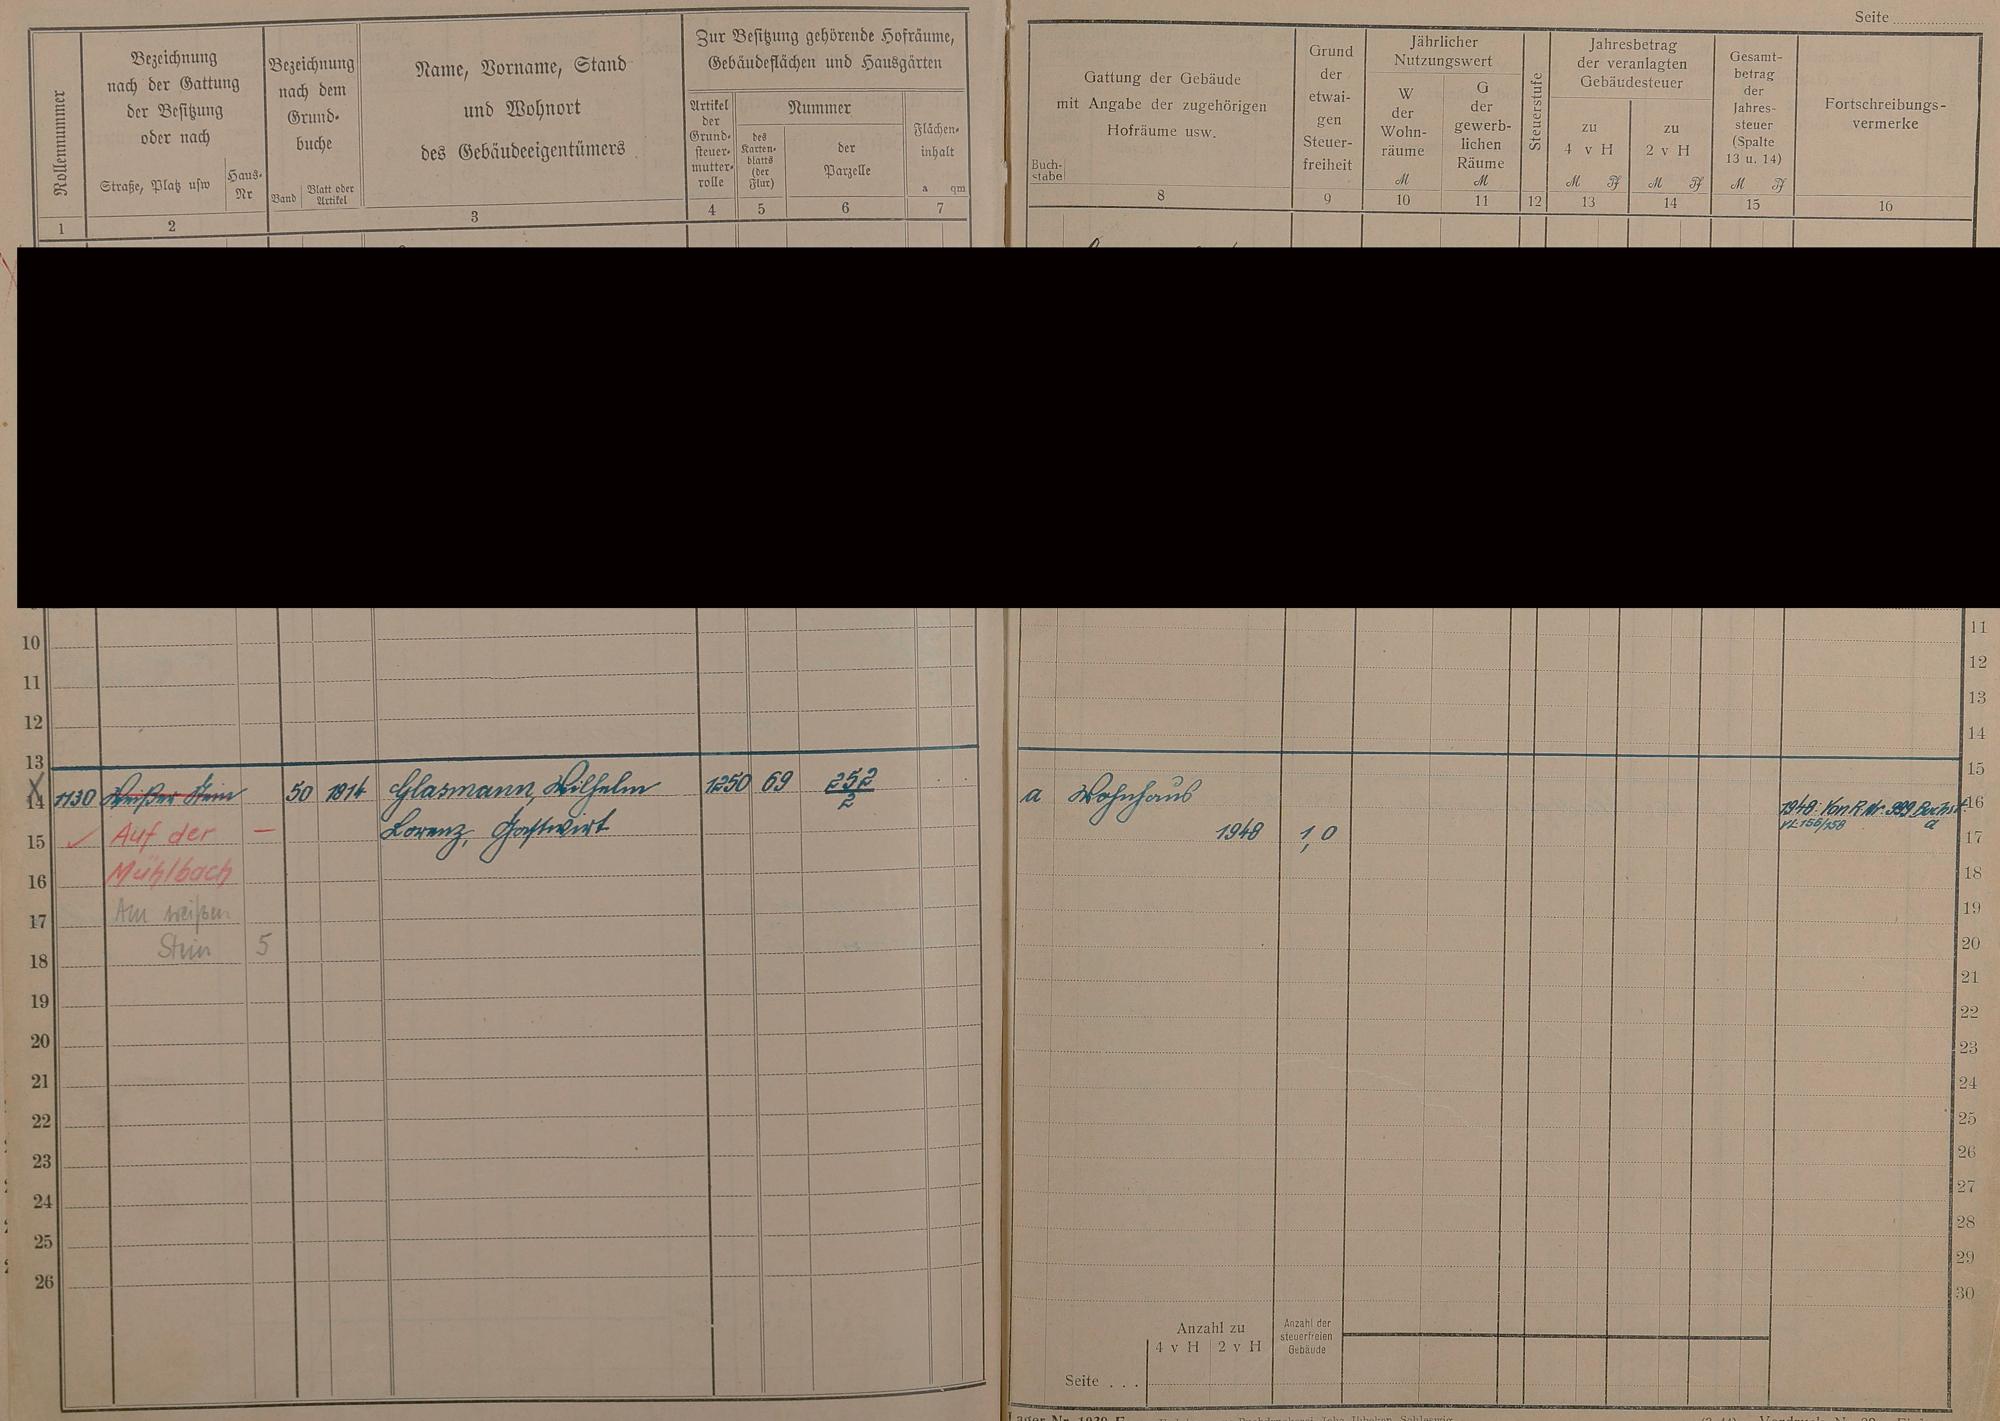 Seite
Rollennummer
Bezeichnung
nach der Gattung
der Besitzung
oder nach
Straße, Platz usw
Haus-
Nr
Bezeichnung
nach dem
Grund-
buche
Band
Blatt oder
Artikel
Name, Vorname, Stand
und Wohnort
des Gebäudeeigentümers
Zur Besitzung gehörende Hofräume,
Gebäudeflächen und Hausgärten
Artikel
der
Grund-
steuer-
mutter-
rolle
Nummer
des
Karten-
blatts
(der
Flur)
der
Parzelle
Flächen-
inhalt
a qm
1 2 3 4 5 6 7
Gattung der Gebäude
mit Angabe der zugehörigen
Hofräume usw.
Buch-
stabe
Grund
der
etwai-
gen
Steuer-
freiheit
Jährlicher
Nutzungswert
W
der
Wohn-
räume
M
G
der
gewerb-
lichen
Räume
M
Steuerstufe
Jahresbetrag
der veranlagten
Gebäudesteuer
zu
4 v H
M Pf
zu
2 v H
M Pf
Gesamt-
betrag
der
Jahres-
steuer
(Spalte
13 u. 14)
M Pf
Fortschreibungs-
vermerke
8 9 10 11 12 13 14 15 16
10
11
12
13
14 1130 Weißer Stein 50 1814 Glasmann, Wilhelm 1250 69 252/2
15 Auf der — Lorenz, Gastwirt
16 Mühlbach
17 Am weißen
18 Stein 5
19
20
21
22
23
24
25
26
11
12
13
14
15
a Wohnhaus 1948: Von R. Nr. 999 Buchst. 16
1948 1,0 a 17
18
19
20
21
22
23
24
25
26
27
28
29
30
Anzahl zu
4 v H 2 v H
Anzahl der
steuerfreien
Gebäude
Seite . . .